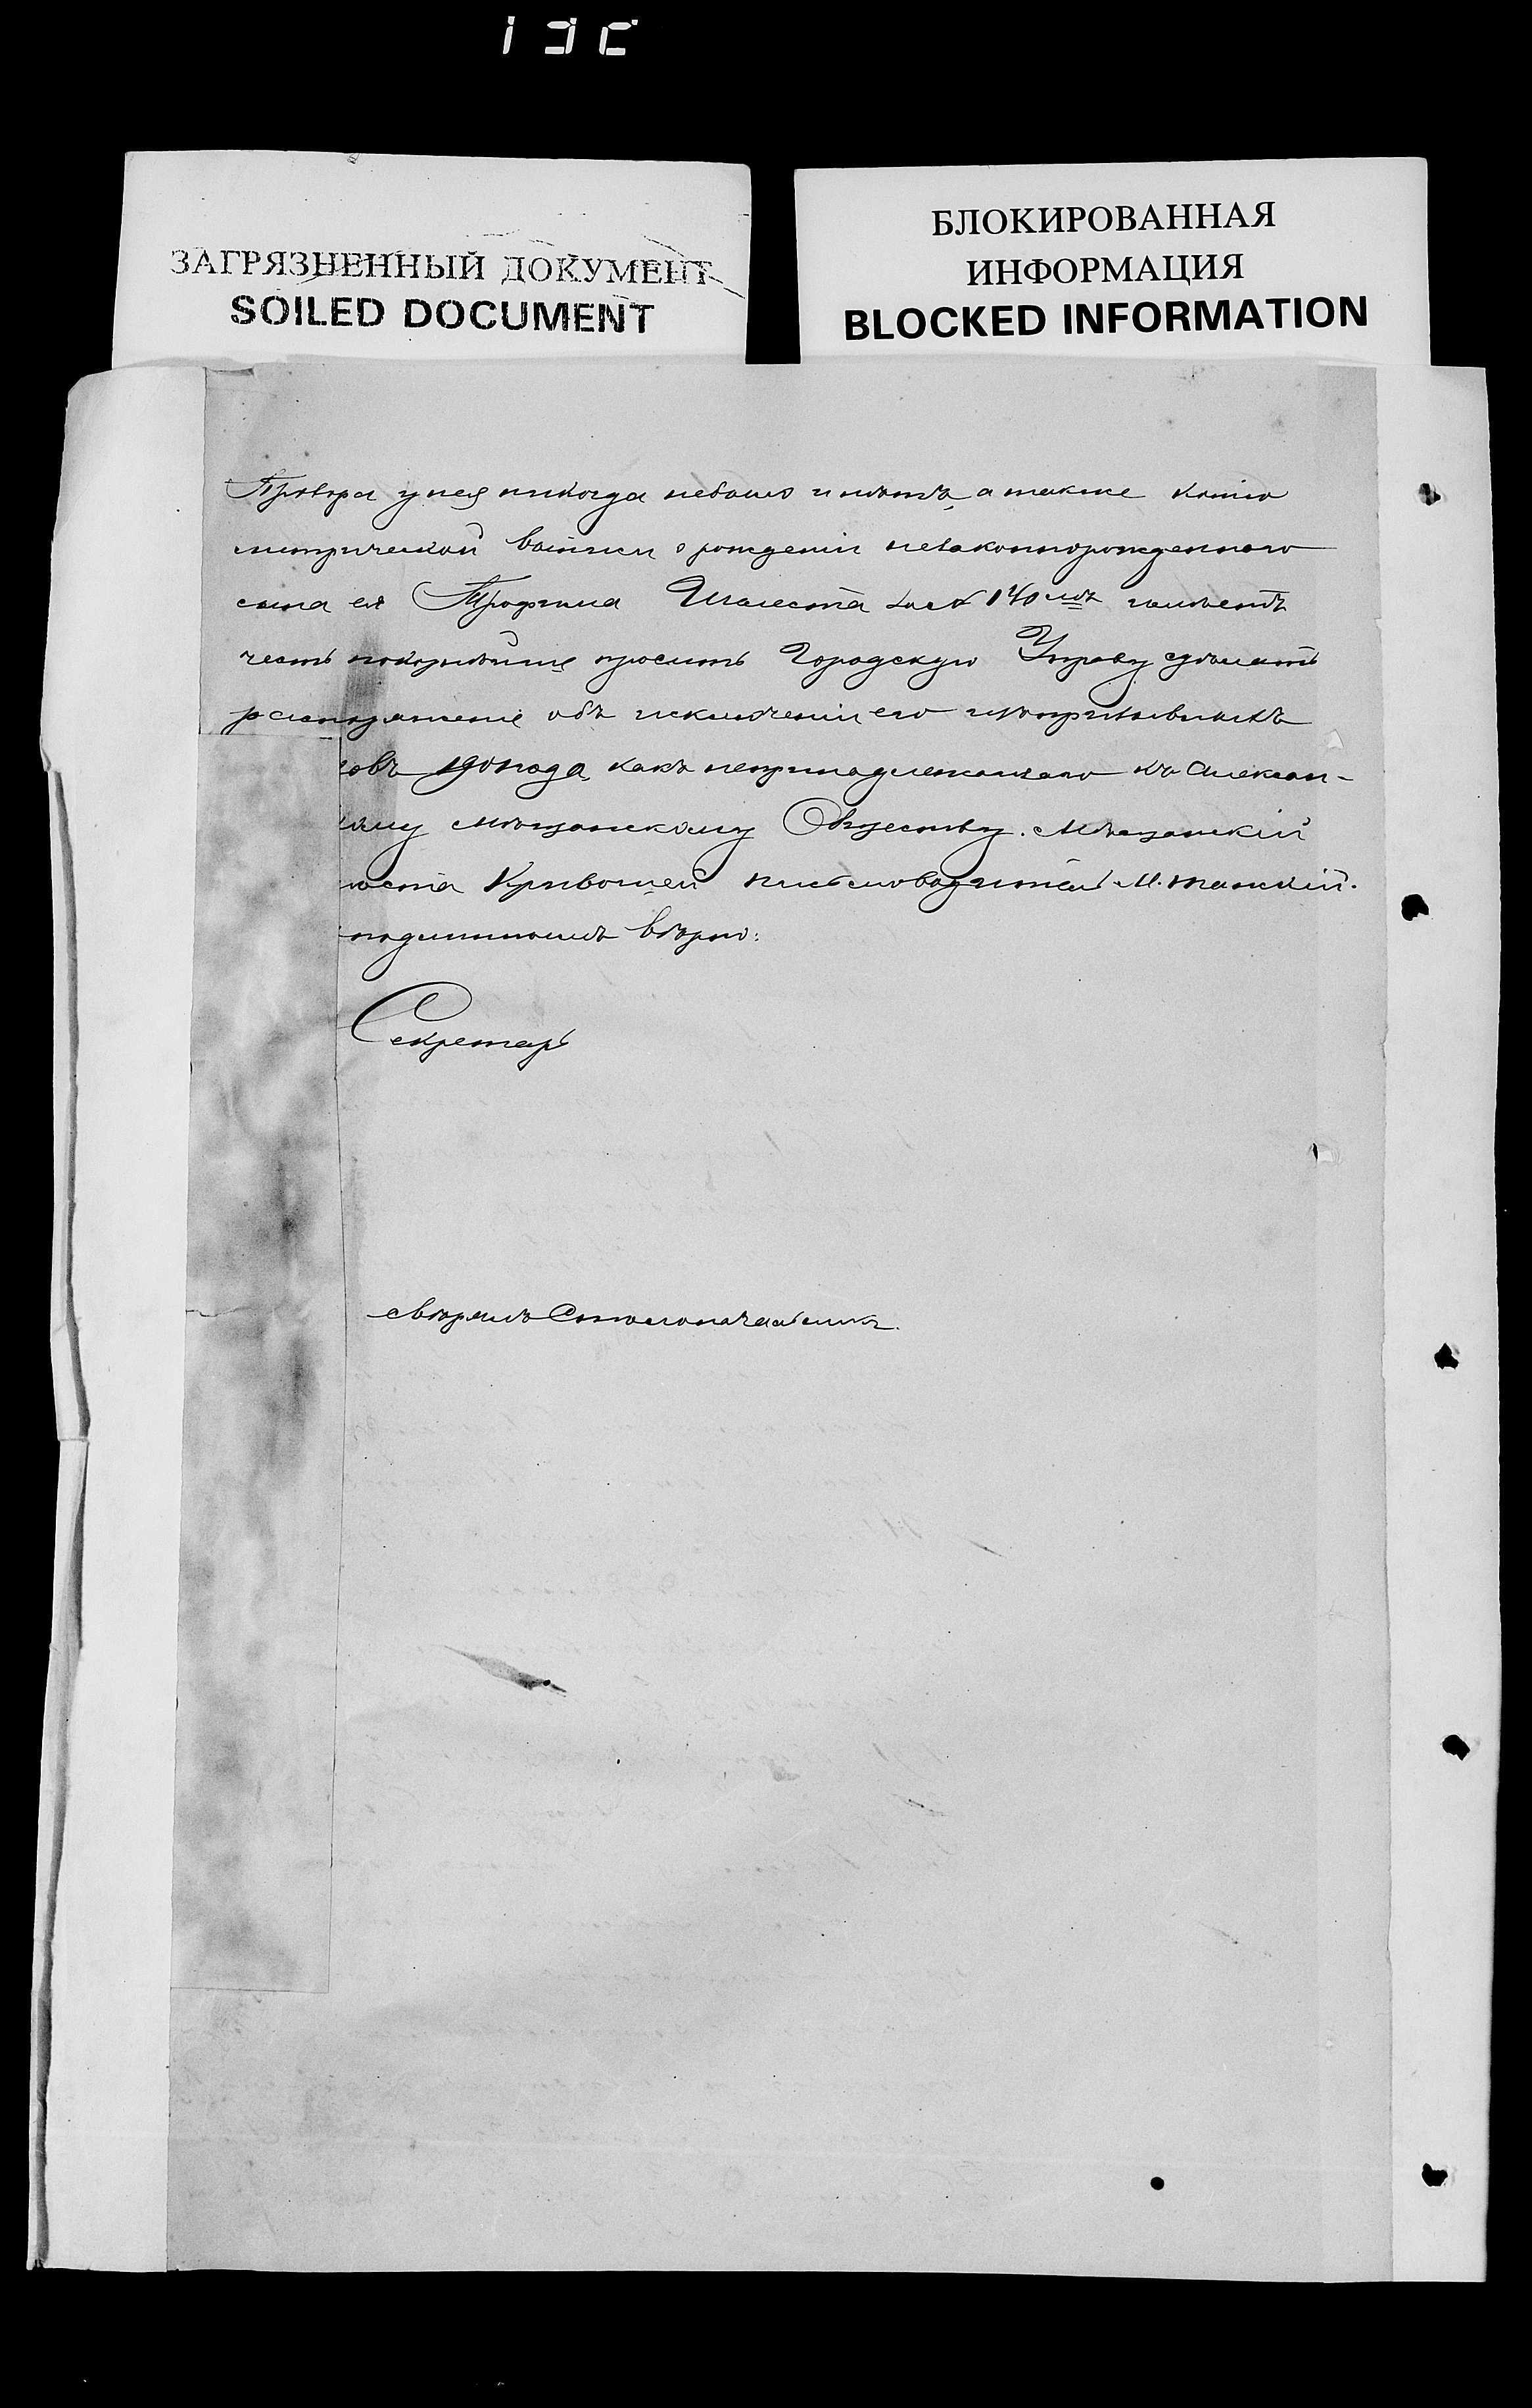 ЗАГРЯЗНЕННЫЙ ДОКУМЕНТ
SOILED DOCUMENT
БЛОКИРОВАННАЯ
ИНФОРМАЦИЯ
BLOCKED INFORMATION
у нея никогда небыло и нѣтъ, а также копію
метрической выписи о рожденіи незаконнорожденнаго
сына ея Трофима Шалеста за № 140 имѣетъ
честь покорнѣйше просить Городскую Управу сдѣлать
распоряженіе объ исключеніи его изъ призывныхъ
овъ 1901 года, какъ непринадлежащаго къ Алексан-
кому мѣщанскому Обществу. Мѣщанскій
роста Кривошей письмоводитель М.
подлиннымъ вѣрно:
Секретарь
свѣрялъ Столоначальникъ